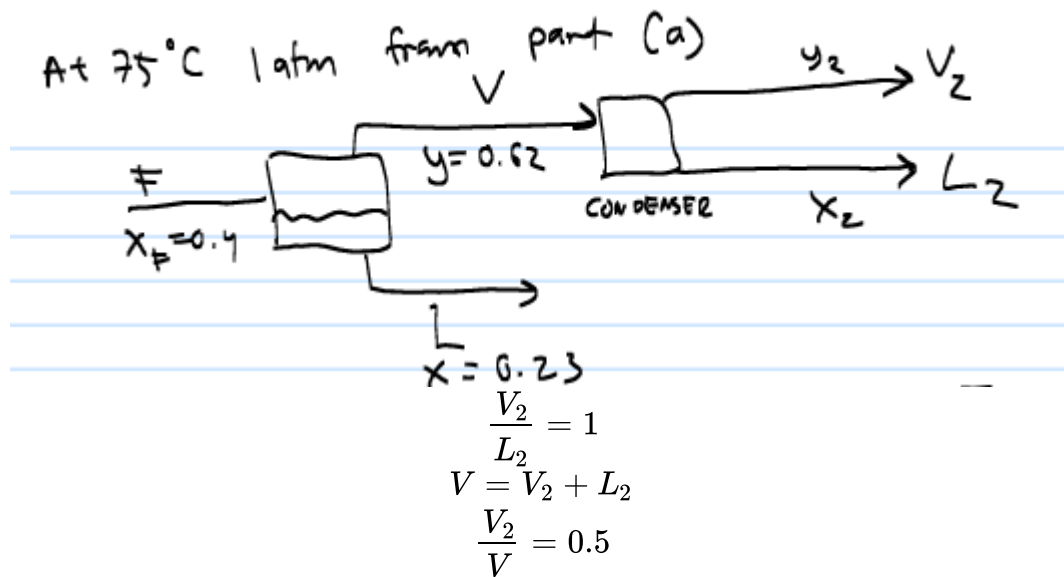 At 75°C 1 atm from part (a)
V
y₂
V₂
F
y = 0.62
L₂
CONDENSER
x₂
x_F = 0.4
L
x = 0.23
V₂/L₂ = 1
V = V₂ + L₂
V₂/V = 0.5